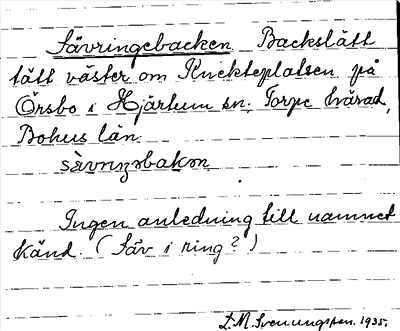 Sävringebacken Backslätt
tätt väster om Knekteplatsen på
Örsbo i Hjärtum sn. Torpe härad,
Bohus län.
sàvnŋəbakən
Ingen anledning till namnet
känd. (Säv i ring?)
L.M. Svenungsson. 1935.